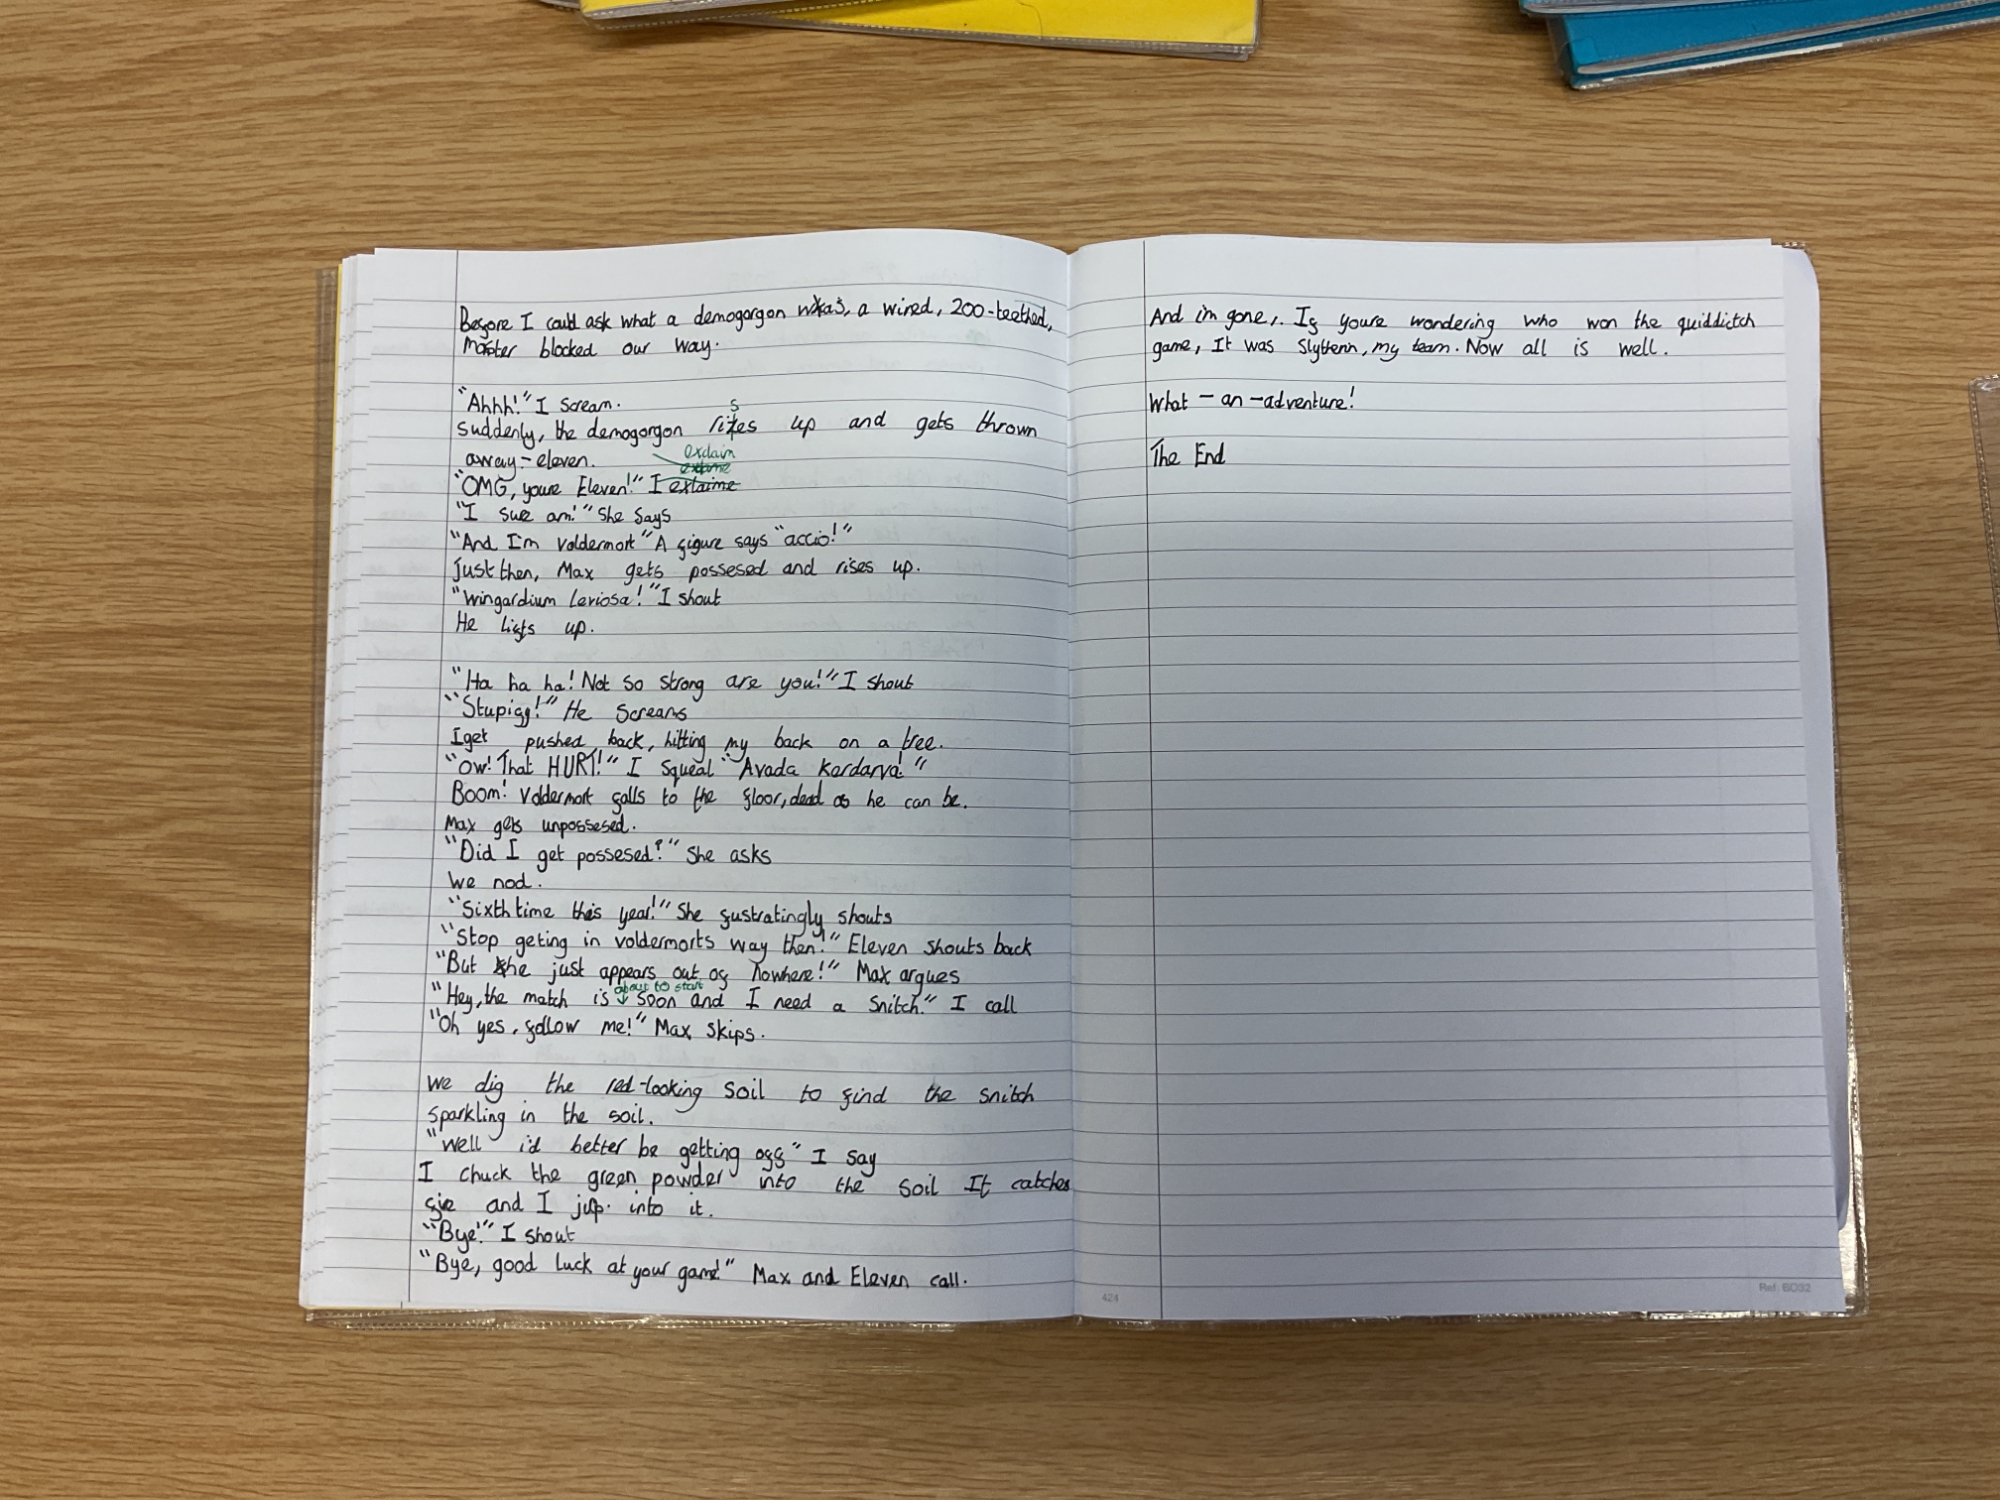 Before I could ask what a demogorgon was, a wired, 200-teethed,
Monster blocked our way.
"Ahhh!" I scream.
s
Suddenly, the demogorgon rizes up and gets thrown
away - eleven.
exclaim
"OMG, youre Eleven!" I exlaime
"I sure am!" She says
"And I'm Voldermort" A figure says "accio!"
Just then, Max gets possesed and rises up.
"Wingardium leviosa!" I shout
He lifts up.
"Ha ha ha! Not so strong are you!" I shout
"Stupiff!" He screams
I get pushed back, hitting my back on a tree.
"Ow! That HURT!" I squeal "Avada Kerdarva!"
Boom! Voldermort falls to the floor, dead as he can be.
Max gets unpossesed.
"Did I get possesed?" She asks
We nod.
"Sixth time this year!" She fustratingly shouts
"Stop geting in voldermorts way then!" Eleven shouts back
"But he just appears out of nowhere!" Max argues
about to start
"Hey, the match is soon and I need a snitch." I call
"Oh yes, follow me!" Max skips.
We dig the red-looking soil to find the snitch
sparkling in the soil.
"Well i'd better be getting off" I say
I chuck the green powder into the soil It catches
fire and I jup into it.
"Bye!" I shout
"Bye, good luck at your game!" Max and Eleven call.
And i'm gone,. If youre wondering who won the quiddictch
game, It was Slytherin, my team. Now all is well.
What - an - adventure!
The End
424
Ref: BO32